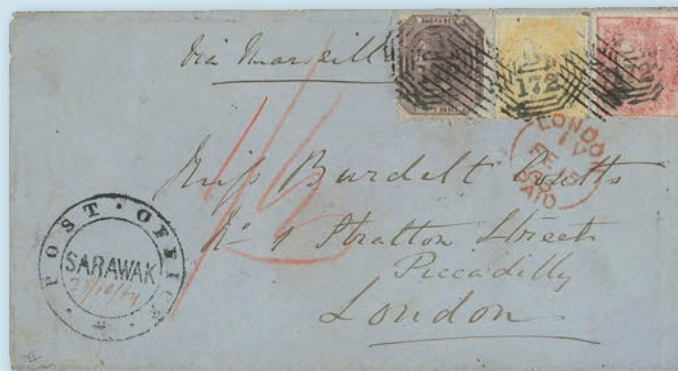 Via Marseill
EIGHT
172
LONDO
PAID
Miss Burdett Coutts
No 1 Stratton Street
Piccadilly
London
POST · OFFICE
SARAWAK